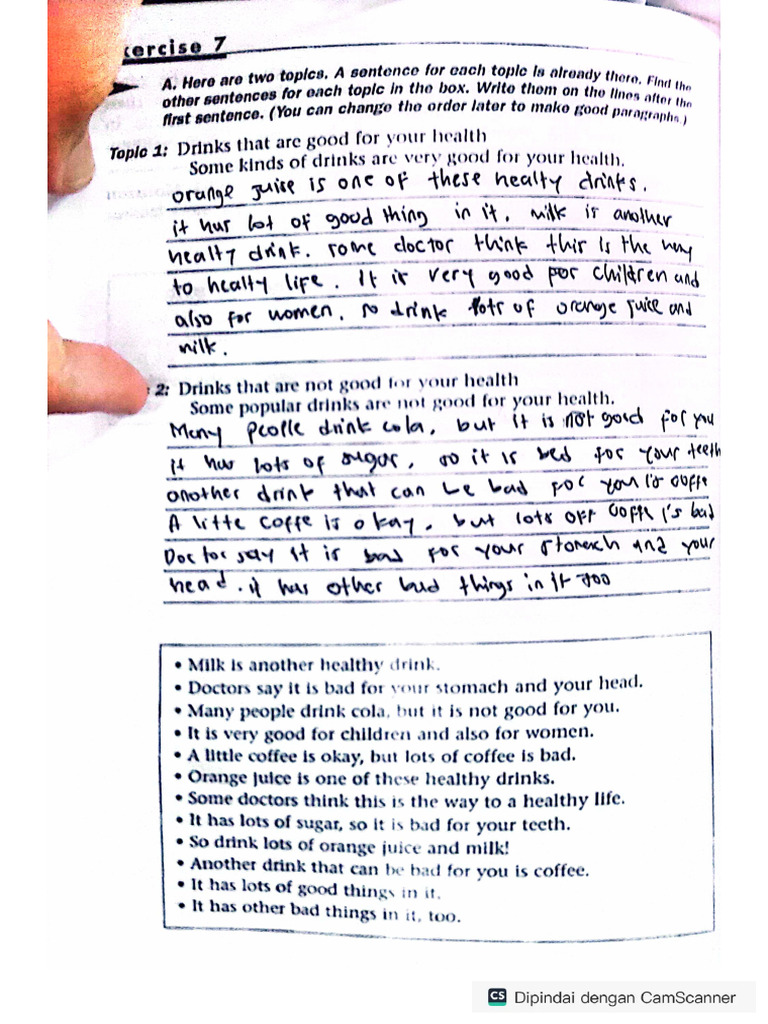 xercise 7
A. Here are two topics. A sentence for each topic is already there. Find the
other sentences for each topic in the box. Write them on the lines after the
first sentence. (You can change the order later to make good paragraphs.)
Topic 1: Drinks that are good for your health
Some kinds of drinks are very good for your health.
orange juise is one of these healty drinks.
it has lot of good thing in it. milk is another
healty drink. some doctor think this is the way
to healty life. It is very good for children and
also for women. so drink lots of orange juice and
milk.
2: Drinks that are not good for your health
Some popular drinks are not good for your health.
Many people drink cola, but it is not good for you
it has lots of sugar, so it is bed for your teeth
another drink that can be bad for you is
A litte coffe is okay, but lots off is bad
Doctor say it is bad for your stomach and your
head. it has other bad things in it too
• Milk is another healthy drink.
• Doctors say it is bad for your stomach and your head.
• Many people drink cola, but it is not good for you.
• It is very good for children and also for women.
• A little coffee is okay, but lots of coffee is bad.
• Orange juice is one of these healthy drinks.
• Some doctors think this is the way to a healthy life.
• It has lots of sugar, so it is bad for your teeth.
• So drink lots of orange juice and milk!
• Another drink that can be bad for you is coffee.
• It has lots of good things in it.
• It has other bad things in it, too.
CS Dipindai dengan CamScanner